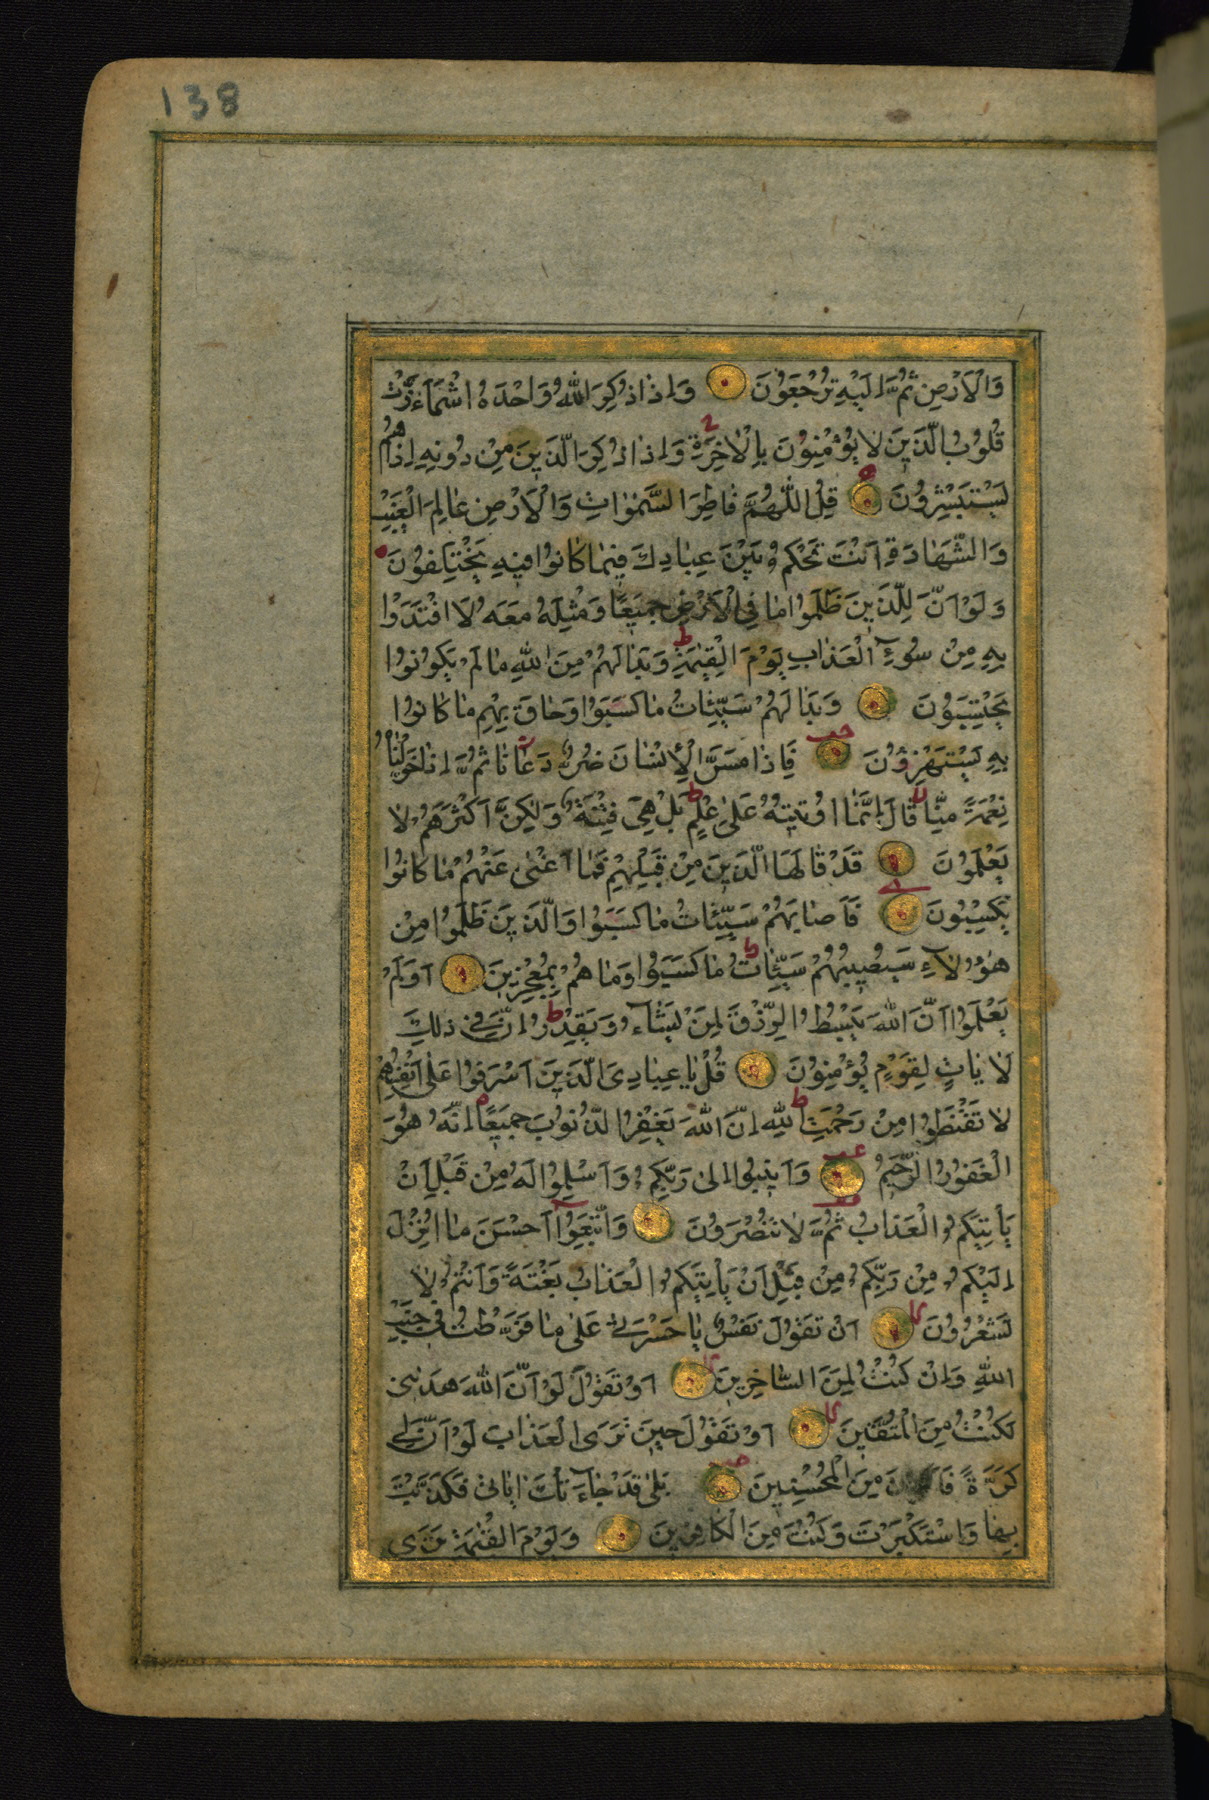 138
وَالْاَرْضِ ثُمَّ اِلَيْهِ تُرْجَعُوْنَ وَاِذَا ذُكِرَ اللّٰهُ وَحْدَهُ اشْمَاَزَّتْ
قُلُوْبُ الَّذِيْنَ لَا يُؤْمِنُوْنَ بِالْاٰخِرَةِ وَاِذَا ذُكِرَ الَّذِيْنَ مِنْ دُوْنِهِ اِذَا هُمْ
يَسْتَبْشِرُوْنَ قُلِ اللّٰهُمَّ فَاطِرَ السَّمٰوَاتِ وَالْاَرْضِ عَالِمَ الْغَيْبِ
وَالشَّهَادَةِ اَنْتَ تَحْكُمُ بَيْنَ عِبَادِكَ فِيْمَا كَانُوْا فِيْهِ يَخْتَلِفُوْنَ
وَلَوْ اَنَّ لِلَّذِيْنَ ظَلَمُوْا مَا فِي الْاَرْضِ جَمِيْعًا وَمِثْلَهُ مَعَهُ لَافْتَدَوْا
بِهِ مِنْ سُوْٓءِ الْعَذَابِ يَوْمَ الْقِيٰمَةِ وَبَدَا لَهُمْ مِنَ اللّٰهِ مَا لَمْ يَكُوْنُوْا
يَحْتَسِبُوْنَ وَبَدَا لَهُمْ سَيِّئَاتُ مَا كَسَبُوْا وَحَاقَ بِهِمْ مَا كَانُوْا
بِهِ يَسْتَهْزِؤُنَ فَاِذَا مَسَّ الْاِنْسَانَ ضُرٌّ دَعَانَا ثُمَّ اِذَا خَوَّلْنَاهُ
نِعْمَةً مِنَّا قَالَ اِنَّمَا اُوْتِيْتُهُ عَلٰى عِلْمٍ بَلْ هِيَ فِتْنَةٌ وَلٰكِنَّ اَكْثَرَهُمْ لَا
يَعْلَمُوْنَ قَدْ قَالَهَا الَّذِيْنَ مِنْ قَبْلِهِمْ فَمَا اَغْنٰى عَنْهُمْ مَا كَانُوْا
يَكْسِبُوْنَ فَاَصَابَهُمْ سَيِّئَاتُ مَا كَسَبُوْا وَالَّذِيْنَ ظَلَمُوْا مِنْ
هٰؤُلَآءِ سَيُصِيْبُهُمْ سَيِّئَاتُ مَا كَسَبُوْا وَمَا هُمْ بِمُعْجِزِيْنَ اَوَلَمْ
يَعْلَمُوْا اَنَّ اللّٰهَ يَبْسُطُ الرِّزْقَ لِمَنْ يَشَآءُ وَيَقْدِرُ اِنَّ فِيْ ذٰلِكَ
لَاٰيَاتٍ لِقَوْمٍ يُؤْمِنُوْنَ قُلْ يَا عِبَادِيَ الَّذِيْنَ اَسْرَفُوْا عَلٰى اَنْفُسِهِمْ
لَا تَقْنَطُوْا مِنْ رَحْمَتِ اللّٰهِ اِنَّ اللّٰهَ يَغْفِرُ الذُّنُوْبَ جَمِيْعًا اِنَّهُ هُوَ
الْغَفُوْرُ الرَّحِيْمُ وَاَنِيْبُوْا اِلٰى رَبِّكُمْ وَاَسْلِمُوْا لَهُ مِنْ قَبْلِ اَنْ
يَأْتِيَكُمُ الْعَذَابُ ثُمَّ لَا تُنْصَرُوْنَ وَاتَّبِعُوْٓا اَحْسَنَ مَا اُنْزِلَ
اِلَيْكُمْ مِنْ رَبِّكُمْ مِنْ قَبْلِ اَنْ يَأْتِيَكُمُ الْعَذَابُ بَغْتَةً وَاَنْتُمْ لَا
تَشْعُرُوْنَ اَنْ تَقُوْلَ نَفْسٌ يَا حَسْرَتٰى عَلٰى مَا فَرَّطْتُ فِيْ جَنْبِ
اللّٰهِ وَاِنْ كُنْتُ لَمِنَ السَّاخِرِيْنَ اَوْ تَقُوْلَ لَوْ اَنَّ اللّٰهَ هَدٰىنِيْ
لَكُنْتُ مِنَ الْمُتَّقِيْنَ اَوْ تَقُوْلَ حِيْنَ تَرَى الْعَذَابَ لَوْ اَنَّ لِيْ
كَرَّةً مِنَ الْمُحْسِنِيْنَ بَلٰى قَدْ جَآءَتْكَ اٰيَاتِيْ فَكَذَّبْتَ
بِهَا وَاسْتَكْبَرْتَ وَكُنْتَ مِنَ الْكَافِرِيْنَ وَيَوْمَ الْقِيٰمَةِ تَرَى